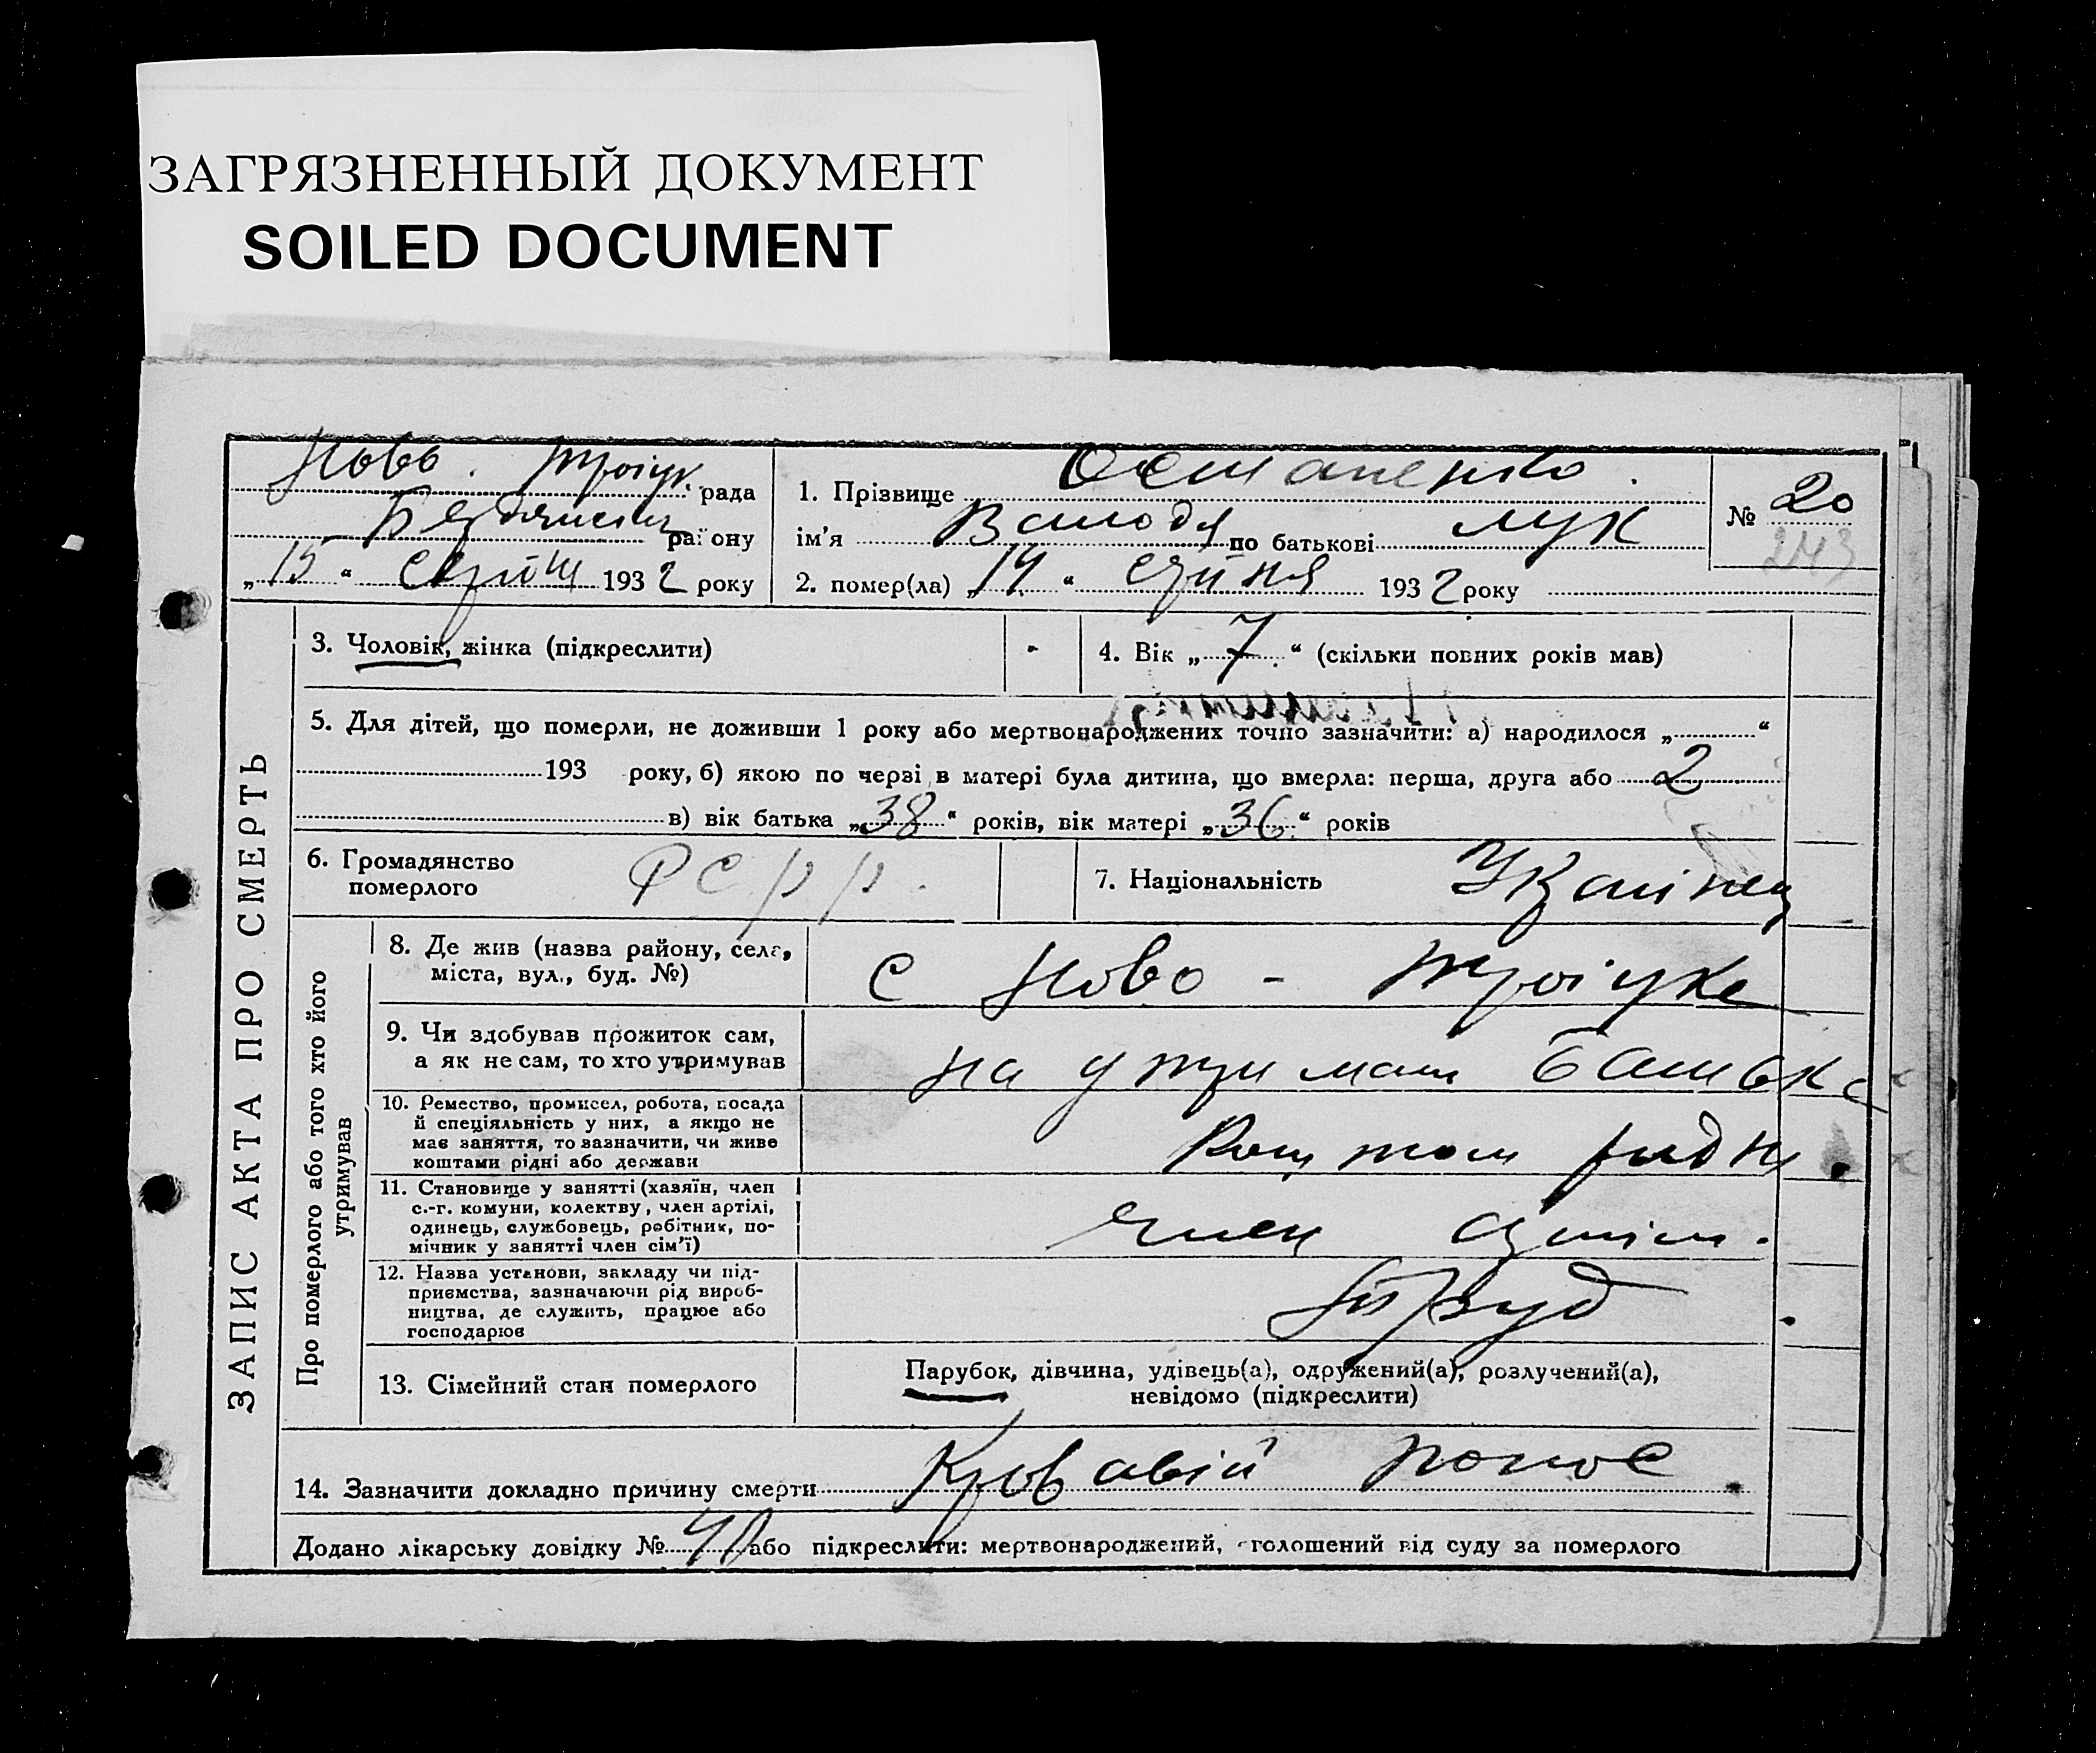 ЗАГРЯЗНЕННЫЙ ДОКУМЕНТ
SOILED DOCUMENT
Ново. Троіцк. рада
Бердянськ району
„15“ 1932 року
1. Прізвище Остапенко.
ім’я Володя по батькові Лук
2. помер(ла) „14“ 1932 року
№ 20
243
ЗАПИС АКТА ПРО СМЕРТЬ
3. Чоловік, жінка (підкреслити)
4. Вік „7“ (скільки повних років мав)
5. Для дітей, що померли, не доживши 1 року або мертвонароджених точно зазначити: а) народилося „ “
193 року, б) якою по черзі в матері була дитина, що вмерла: перша, друга або 2
в) вік батька „38“ років, вік матері „36“ років
6. Громадянство
померлого
РСРР.
7. Національність Украінец
Про померлого або того хто його
утримував
8. Де жив (назва району, села,
міста, вул., буд. №)
с Ново - Троіцке
9. Чи здобував прожиток сам,
а як не сам, то хто утримував
на утриман батька
10. Ремество, промисел, робота, посада
й спеціяльність у них, а якщо не
має заняття, то зазначити, чи живе
коштами рідні або держави
Коштом рідні
11. Становище у занятті (хазяїн, член
с.-г. комуни, колективу, член артілі,
одинець, службовець, робітник, по-
мічник у занятті член сім’ї)
член артіл.
12. Назва установи, закладу чи під-
приємства, зазначаючи рід вироб-
ництва, де служить, працює або
господарює
Труд
13. Сімейний стан померлого
Парубок, дівчина, удівець(а), одружений(а), розлучений(а),
невідомо (підкреслити)
14. Зазначити докладно причину смерти Кровавій понос
Додано лікарську довідку № або підкреслити: мертвонароджений, оголошений від суду за померлого